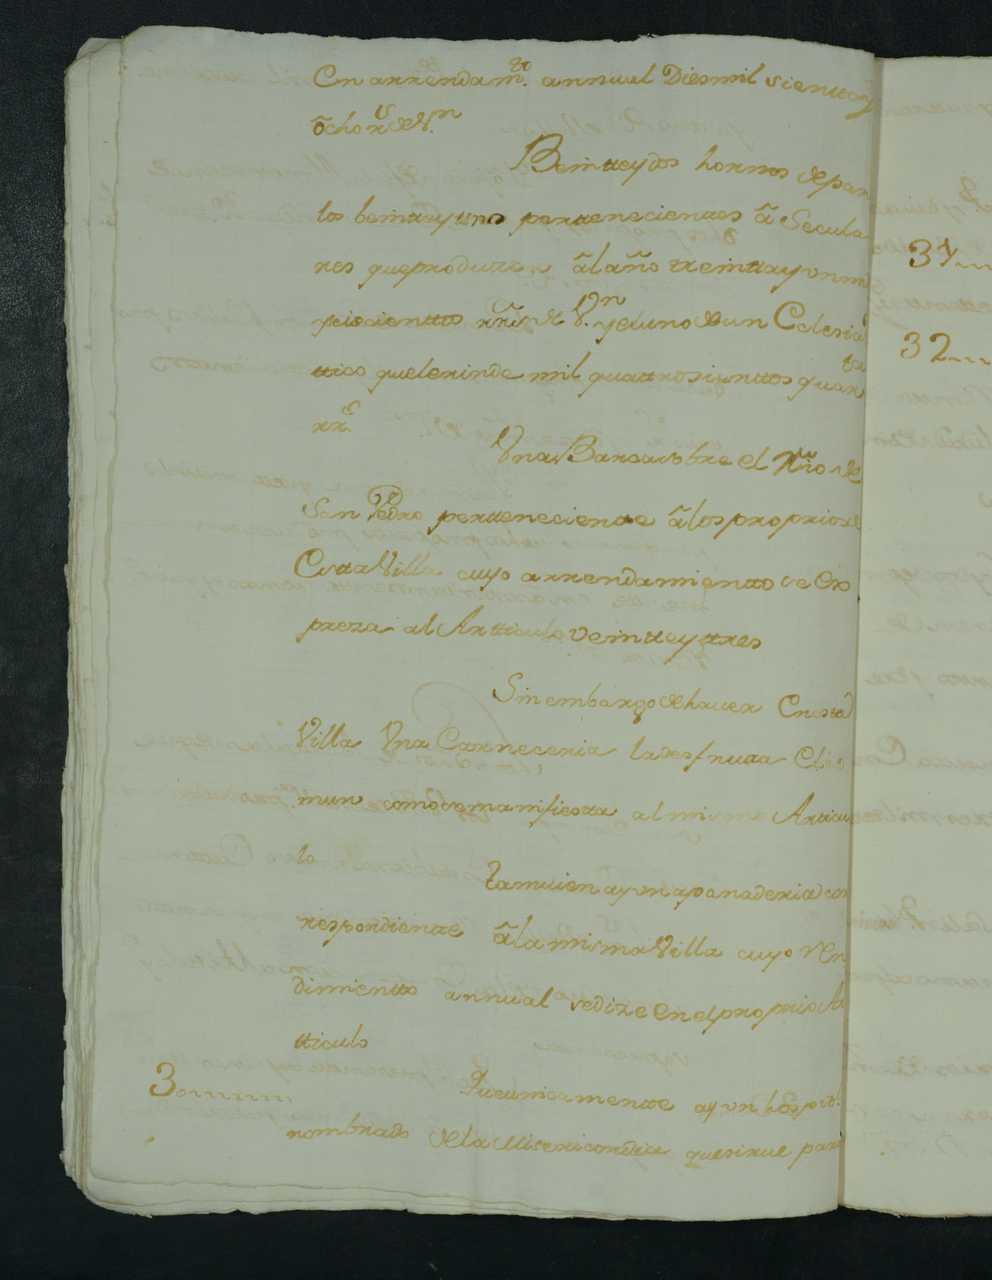 En arrendam.to annual Diesmil sienttoy
ôcho r.s de V.n
Beintteydos hornos depan
los beinttyuno pertenecientes â Secula
res queproduzen âl año treinttayunm
seiscienttos rr.s de V.n yeluno deun Eclesias
ttico quelerinde mil quattrosienttos quar.ta
rr.s
Una Barcasobre el Rio de
San Pedro perteneciente âlospropriosde
Esta Villa cuyo arrendamientto se Ex
preza al Artticulo Veintteyttres
Sinembargo dehaver Enesta
Villa Una Carneceria ladesfrutta El Co
mun comosemanifiesta almismo Artticu
lo
Tamvien ayunapanaderia cor
respondiente âlamismaVilla cuyo rEn
dimientto annual sedize Enelproprio Ar
tticulo
30
Queunicamentte ayun hospit.l
nombrado delaMisericordia quesirve para
34
32